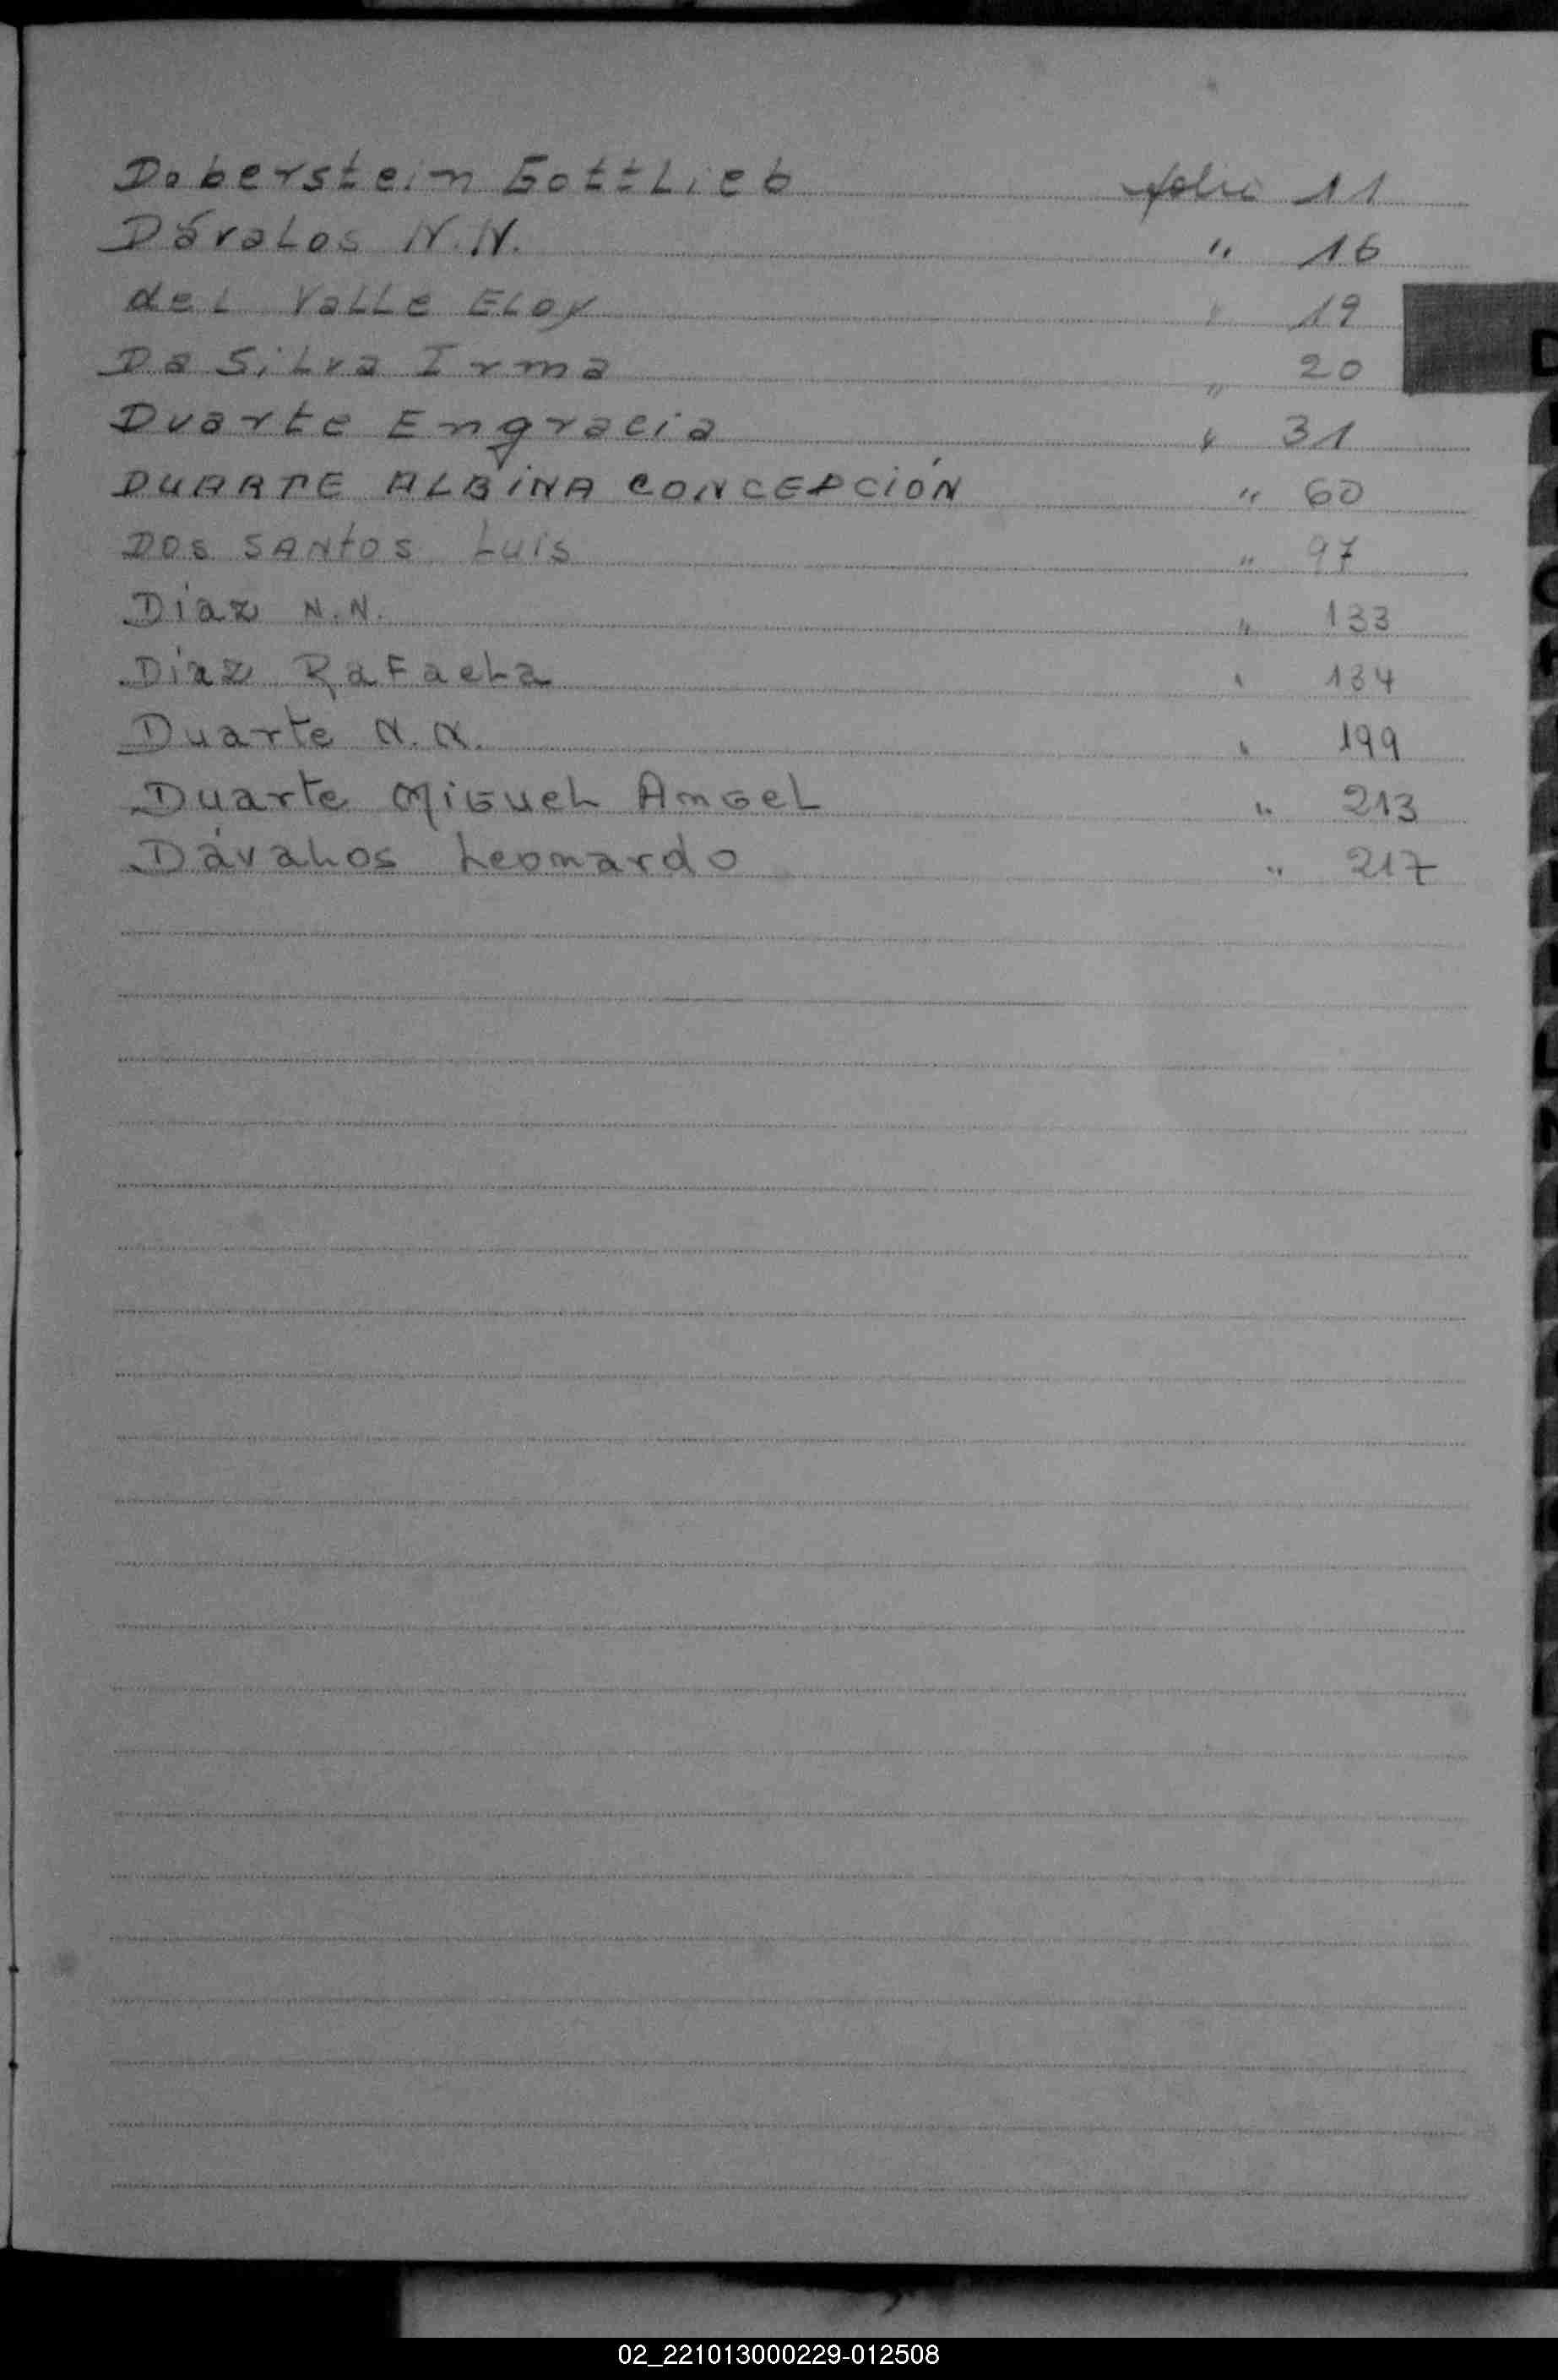 Doberstein Gottlieb folio 11
Dávalos N.N. " 16
del Valle Eloy " 19
Da Silva Irma " 20
Duarte Engracia " 31
DUARTE ALBINA CONCEPCIÓN " 60
Dos SANtos Luis " 97
Díaz N.N. " 133
Díaz Rafaela " 134
Duarte N.N. " 199
Duarte Miguel Angel " 213
Dávalos Leonardo " 217
D
02_221013000229-012508